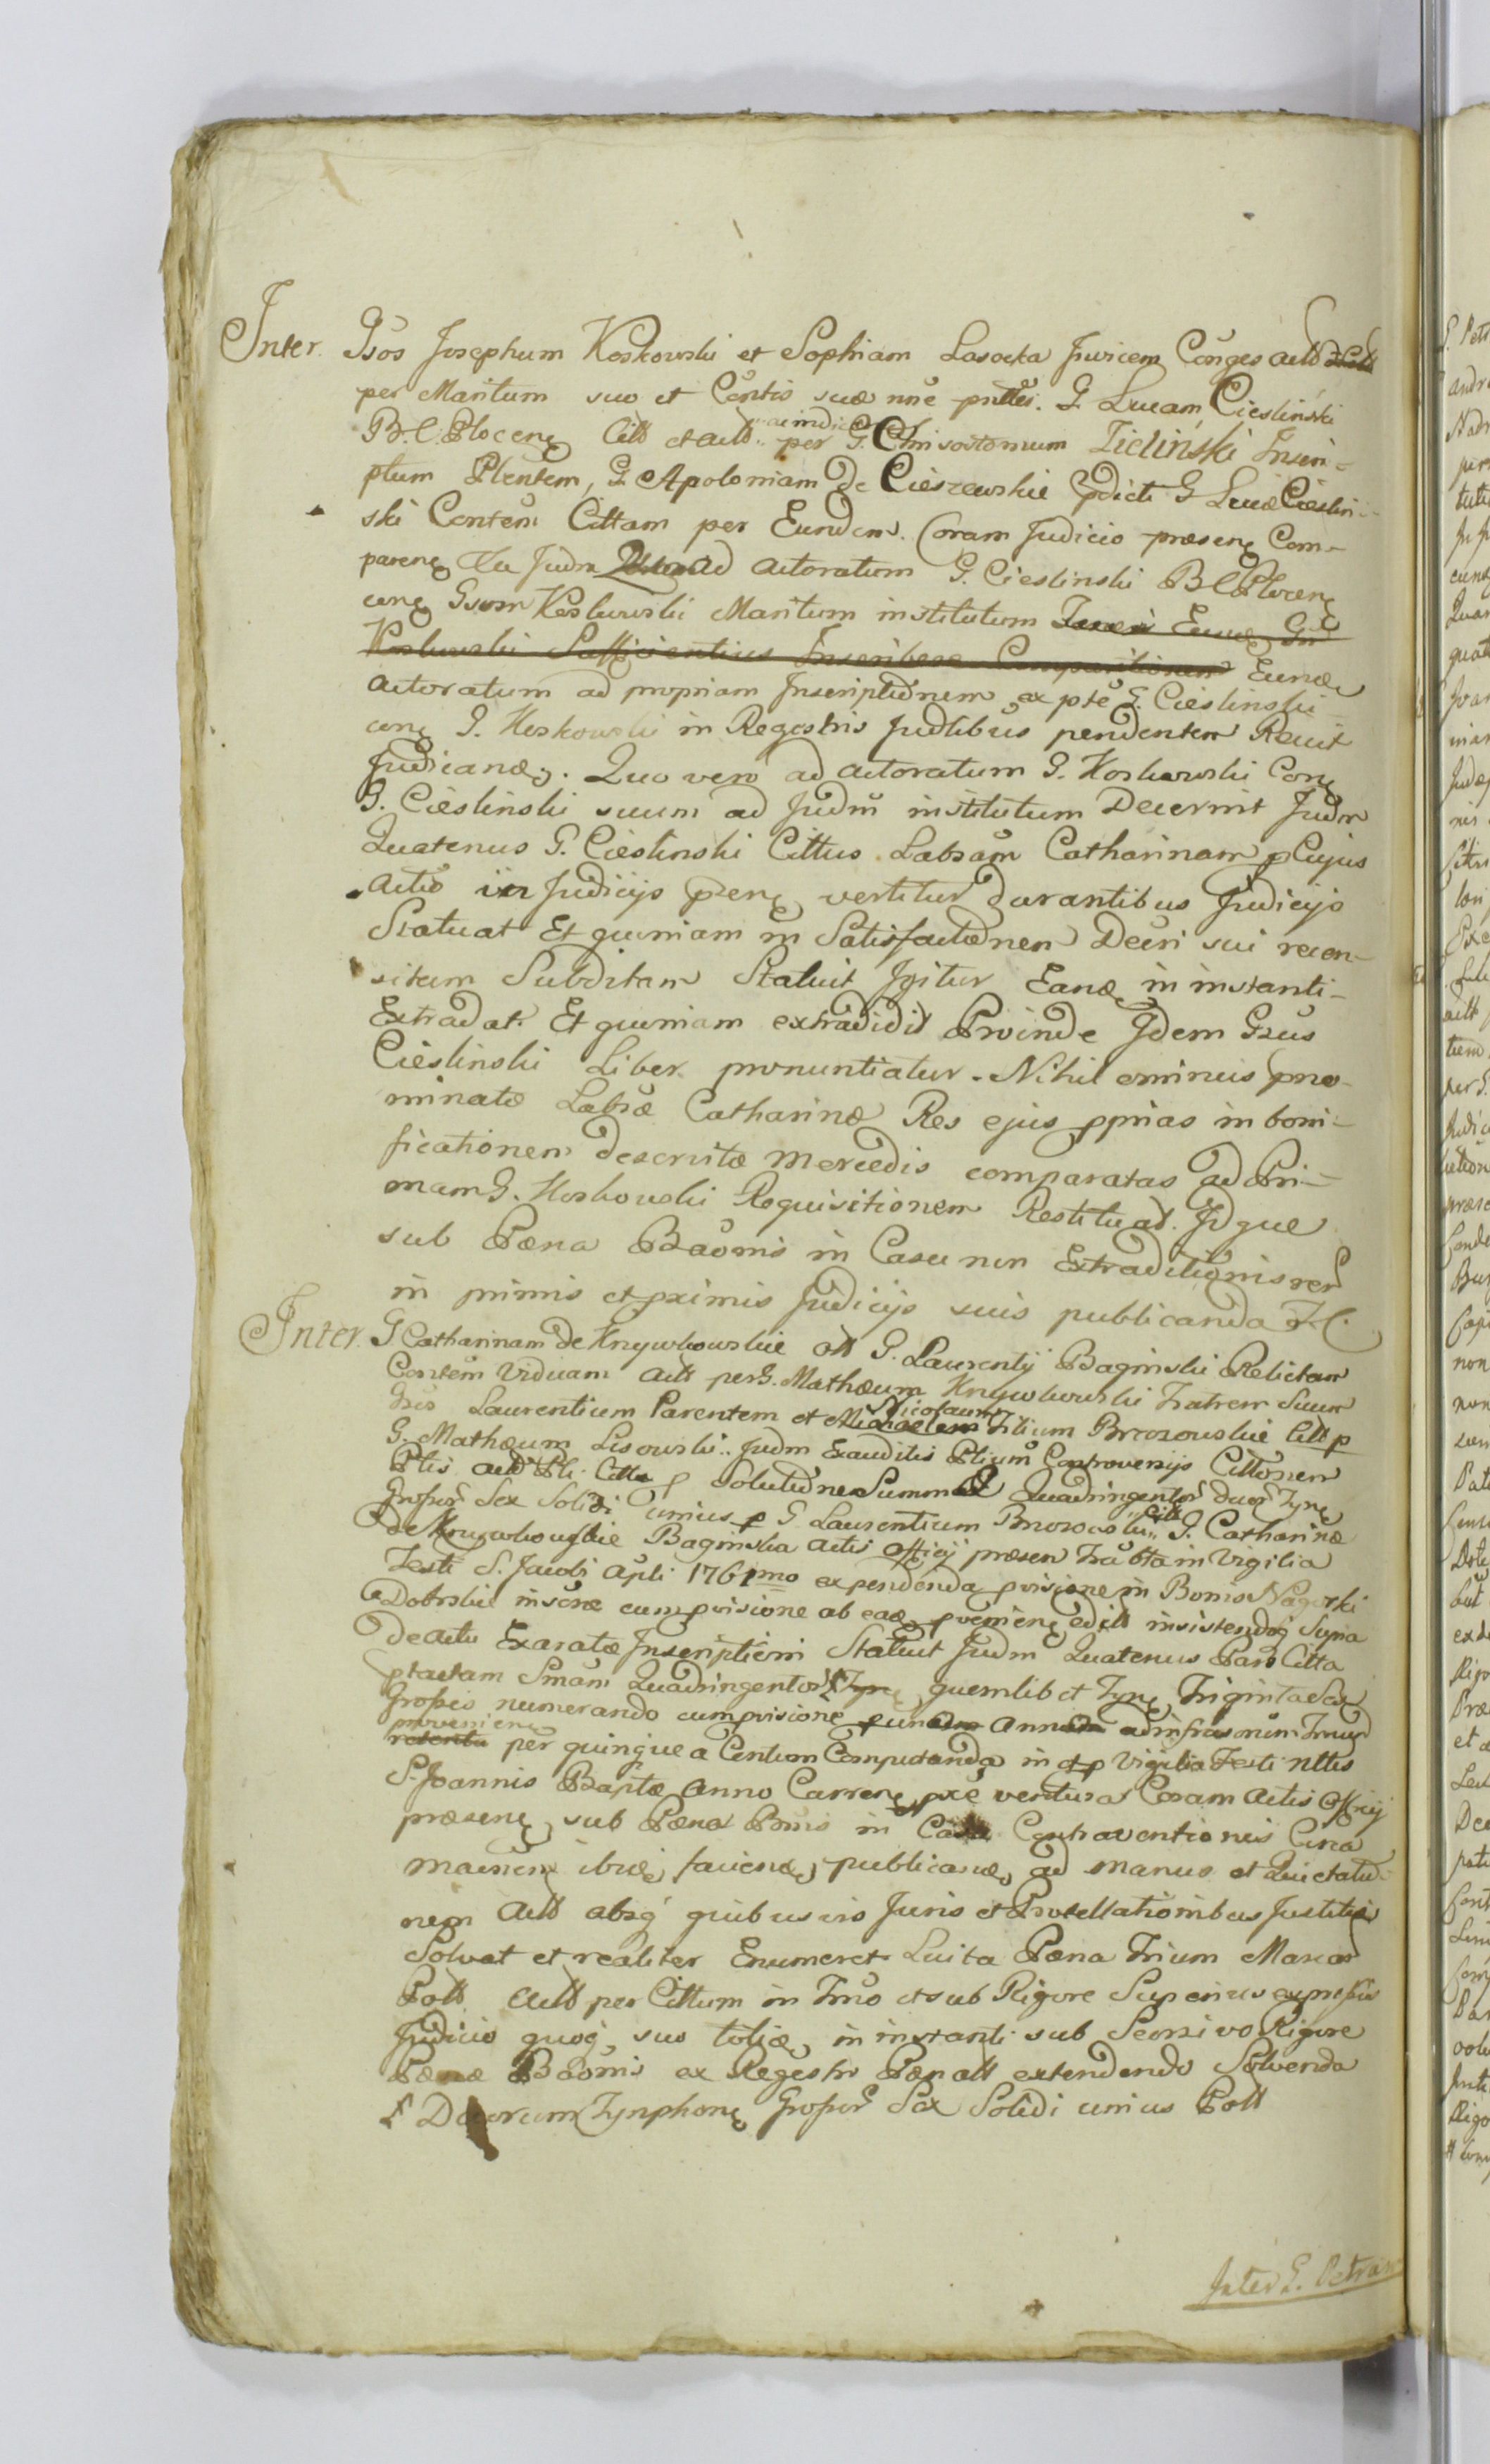 Inter. Gsos Josephum Koskowski et Sophiam Lasocka Invicem Conges actt
per Maritum suo et Contis suæ nõe pnttes. G. Lucam Ciesliński
B. C. Plocenę Citt et actt. per G. Chrisostomum Zieliński Inscri-
ptum Plentem, G. Apoloniam De Cieszewskie pdicti G Lucæ Cieslin-
ski Contem Cittam per Eundem. Coram Judicio præsenę Com-
parenę Judm ad actoratum G. Cieslinski B C Plocenę
cunę Gsum Koskowski Maritum institutum Eunę Gsi
Koskowski Sufficientius Inscribere Comparitionem Eundę
actoratum ad propriam Inscriptiõnem ex pte G. Cieslinski
cunę G. Koskowski in Regestris Judlibus pendentem Reiict
Judicandę. Quo vero ad actoratum G. Koskowski Conę
G. Cieslinski suum ad Judm institutum Decernit Judm
Quatenus G. Cieslinski Cittus Labsam Catharinam p Cujus
actio in Judicijs pzenę vertitur durantibus Judicijs
Statuat Et quoniam in Satisfactiõnem Decri sui recen-
sitam Subditam Statuit Igitur Eandę in instanti-
Extradat. Et quoniam extradidit Proinde Idem Gsus
Cieslinski Liber pronuntiatur. Nihil ominus pno-
minatæ Labsæ Catharinæ Res ejus pprias in boni-
ficationem deservitæ Mercedis comparatas ad Pri-
mam G. Koskowski Requisitionem Restituat. Idque
sub Pæna Baõnis in Casu non Extraditionis rerũ
in primis et pximis Judicijs suis publicanda
Inter. G Catharinam de Krzywkowskie olt G. Laurentij Baginski Relictam
Contem Viduam actt per G. Mathæum Krzywkowski Fratrem Suum
Gsos Laurentium Parentem et Nicolaum Filium Brozowskie Citt p
G. Mathæum Lisowski. Judm Exauditis Ptium Controversijs Cittõnem
Ptis actt Pti Cittæ p Solutiõne Summæ Quadringentor duor Tynę
Grossor Sex Solidi unius p G Laurentium Brozowski citt G. Catharinæ
de Krzywkowskie Baginska actis officij præsen in Vigilia
Festi S. Jacobi Apli 1761mo expendenda pvisione in Bonis Nagorki
Dobrskie inscræ cum pvisione ab eadę pvenienę editt insistendo Supra
De actu Exaratæ Inscriptioni Statuit Judm Quatenus Pars Citta
ptactam Smam Quadringentor quemlibet Tynę Triginta Sex
Grossis numerando cum pvisione
provenienę per quinque a Centum Computanda in et p Vigilia Festi nttis
S. Joannis Baptæ Anno Currenę pxe ventura Coram Actis Officij
præsenę sub Pæna Bnis in Casu Contraventionis Circa
ibidę faciendę publicandę ad manus et Quietatio-
nem Actt absq quibusvis Juris et Protestationibus Justitijs
Solvat et realiter Enumeret Luita Pæna Trium Marcar
Pott Actt per Cittum in Trno et sub Rigore Superius expresso
Judicio quoq suo totidę in instanti sub Seorsivo Rigore
Pænæ Baõnis ex Regestro Pænalt extendendo Solvenda
Duorum Tynphonę Grossor Sex Solidi unius Pott
Inter G. Petrum